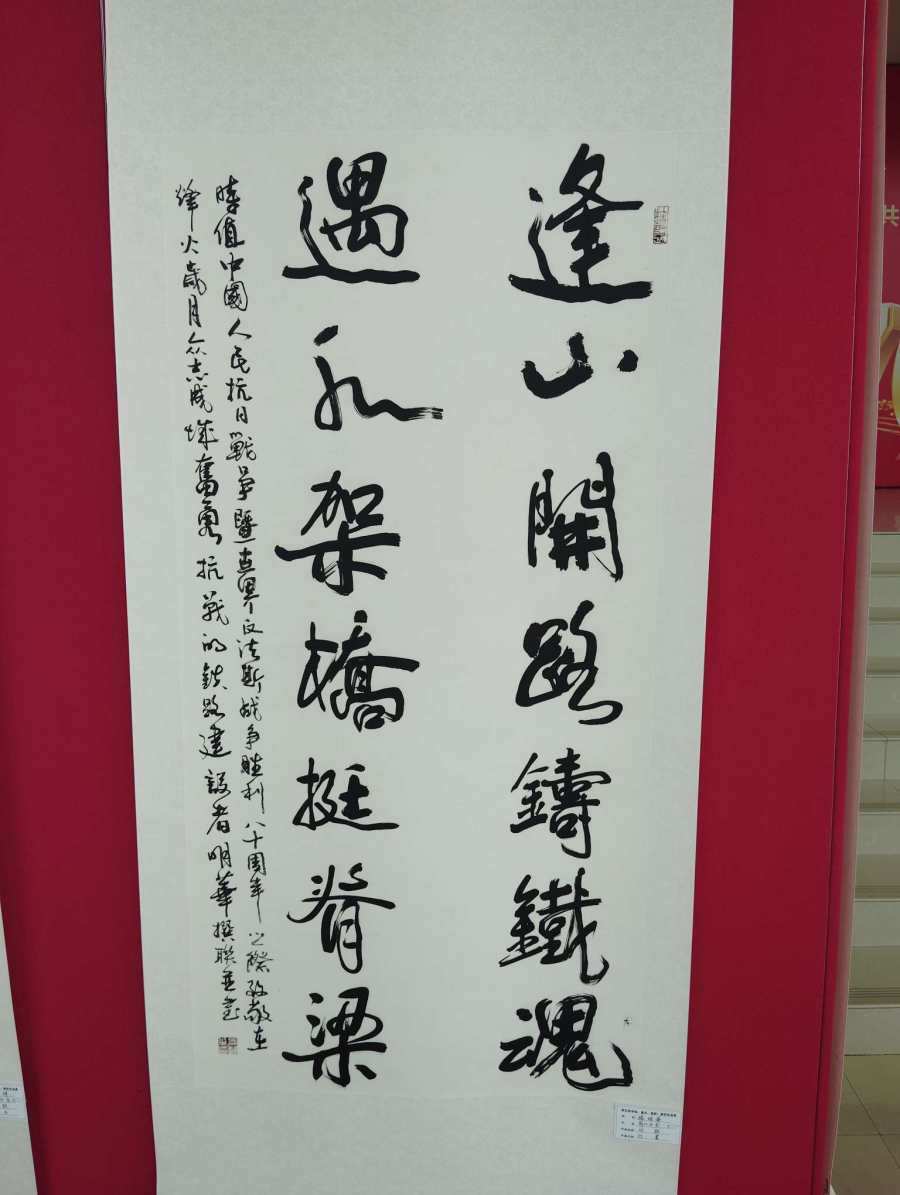 逢山開路鑄鐵魂
遇水架橋挺脊梁
時值中國人民抗日戰爭暨世界反法斯战争勝利八十周年之際致敬在
烽火歲月众志成城奮勇抗戰的鉄路建設者明華撰聯並書
共